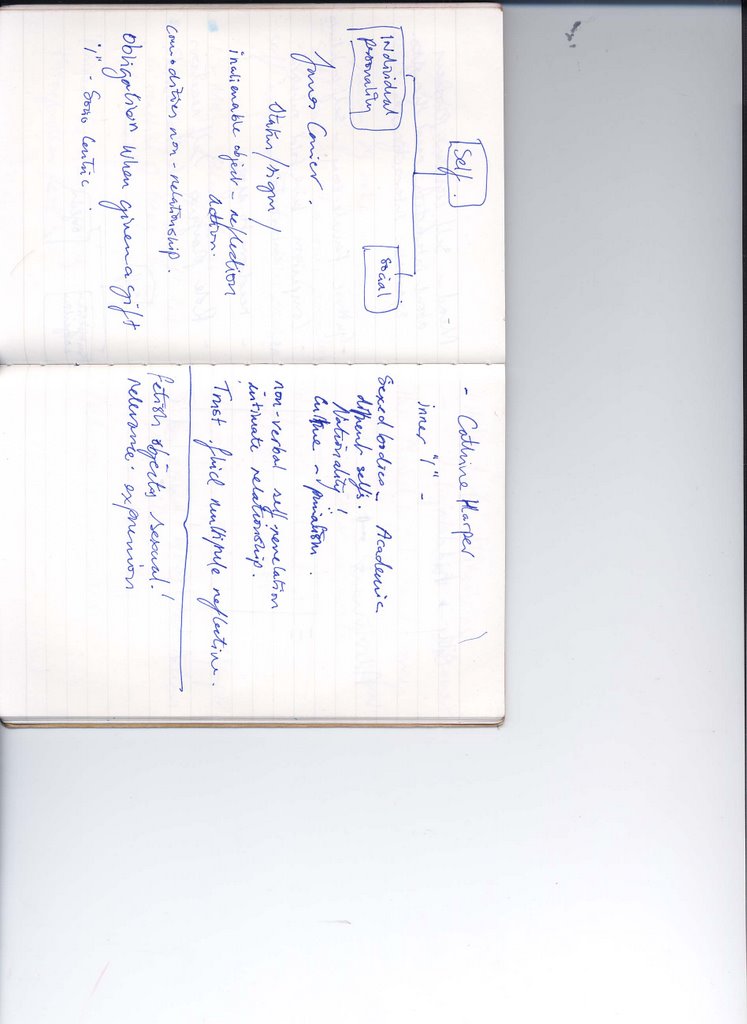 Self.
INdividual
personality
Social
James Carrier.
Status/sign/
inalienable object - reflection
action.
commodities non-relationship.
Obligation when given a gift
"i" - Socio Centric.
- Cathrine Harper
inner "i" -
Sexed bodies - Academic
different selfs.
Nationality!
Culture
non-verbal self-revelation
intimate relationship.
Trust fluid multiple reflective.
fetish objects sexual!
relevance. expression